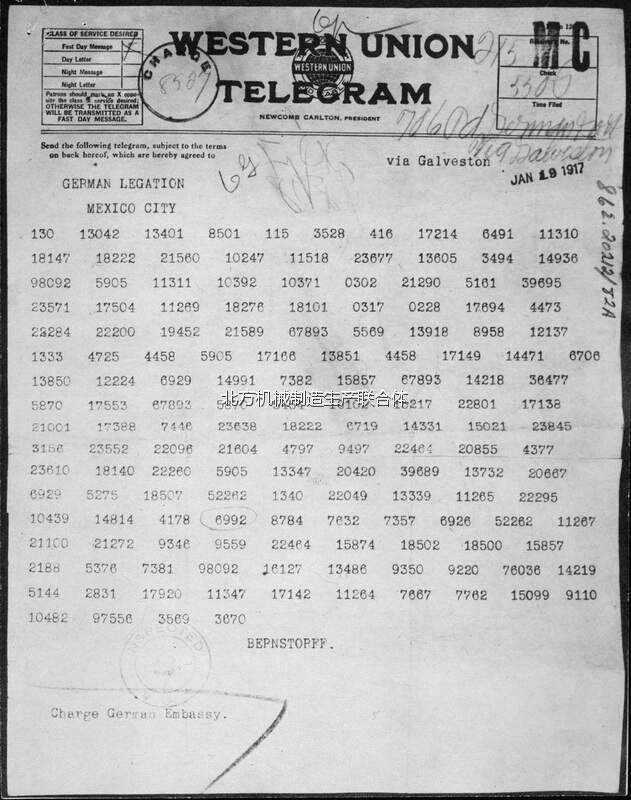 CLASS OF SERVICE DESIRED
Fast Day Message
Day Letter
Night Message
Night Letter
Patrons should mark an X oppo-
site the class of service desired;
OTHERWISE THE TELEGRAM
WILL BE TRANSMITTED AS A
FAST DAY MESSAGE.
CHARGE
WESTERN UNION
WESTERN UNION
TELEGRAM
NEWCOMB CARLTON, PRESIDENT
MC
Check
Time Filed
Send the following telegram, subject to the terms
on back hereof, which are hereby agreed to
via Galveston
JAN 19 1917
GERMAN LEGATION
MEXICO CITY
862.20212/82A
130 13042 13401 8501 115 3528 416 17214 6491 11310
18147 18222 21560 10247 11518 23677 13605 3494 14936
98092 5905 11311 10392 10371 0302 21290 5161 39695
23571 17504 11269 18276 18101 0317 0228 17694 4473
22284 22200 19452 21589 67893 5569 13918 8958 12137
1333 4725 4458 5905 17166 13851 4458 17149 14471 6706
13850 12224 6929 14991 7382 15857 67893 14218 36477
北方机械制造生产联合体
5870 17553 67893 22801 17138
21001 17388 7446 23638 18222 6719 14331 15021 23845
3156 23552 22096 21604 4797 9497 22464 20855 4377
23610 18140 22260 5905 13347 20420 39689 13732 20667
6929 5275 18507 52262 1340 22049 13339 11265 22295
10439 14814 4178 6992 8784 7632 7357 6926 52262 11267
21100 21272 9346 9559 22464 15874 18502 18500 15857
2188 5376 7381 98092 16127 13486 9350 9220 76036 14219
5144 2831 17920 11347 17142 11264 7667 7762 15099 9110
10482 97556 3569 3670
BERNSTORFF.
INSPECTED
Charge German Embassy.